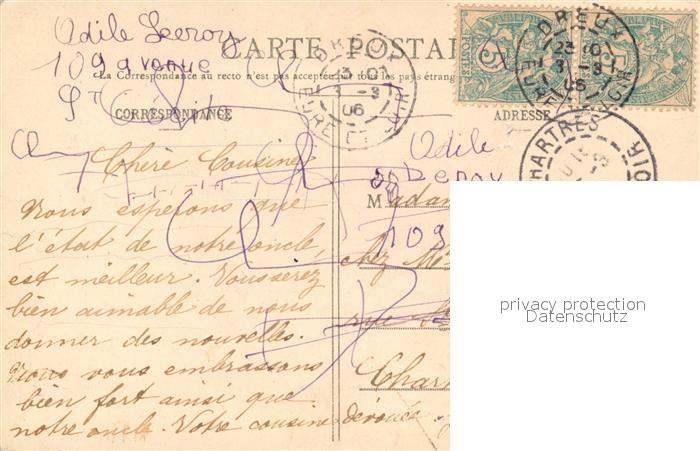 Odile Leroy
109 avenue
St
CARTE POSTALE
La Correspondance au recto n'est pas acceptée par tous les pays étrang
CORRESPONDANCE
ADRESSE
DREUX
23 10
3 -3
06
EURE ET LOIR
DREUX
3 -3
06
EURE ET LOIR
CHARTRES
OIR
POSTES
5
Odile
Leroy
109
Chère Cousine
Nous espérons que
l'état de notre oncle,
est meilleur. Vous serez
bien aimable de nous
donner des nouvelles.
Nous vous embrassons
bien fort ainsi que
notre oncle. Votre cousine dévouée
M adam
chez M
rue
Char
privacy protection
Datenschutz